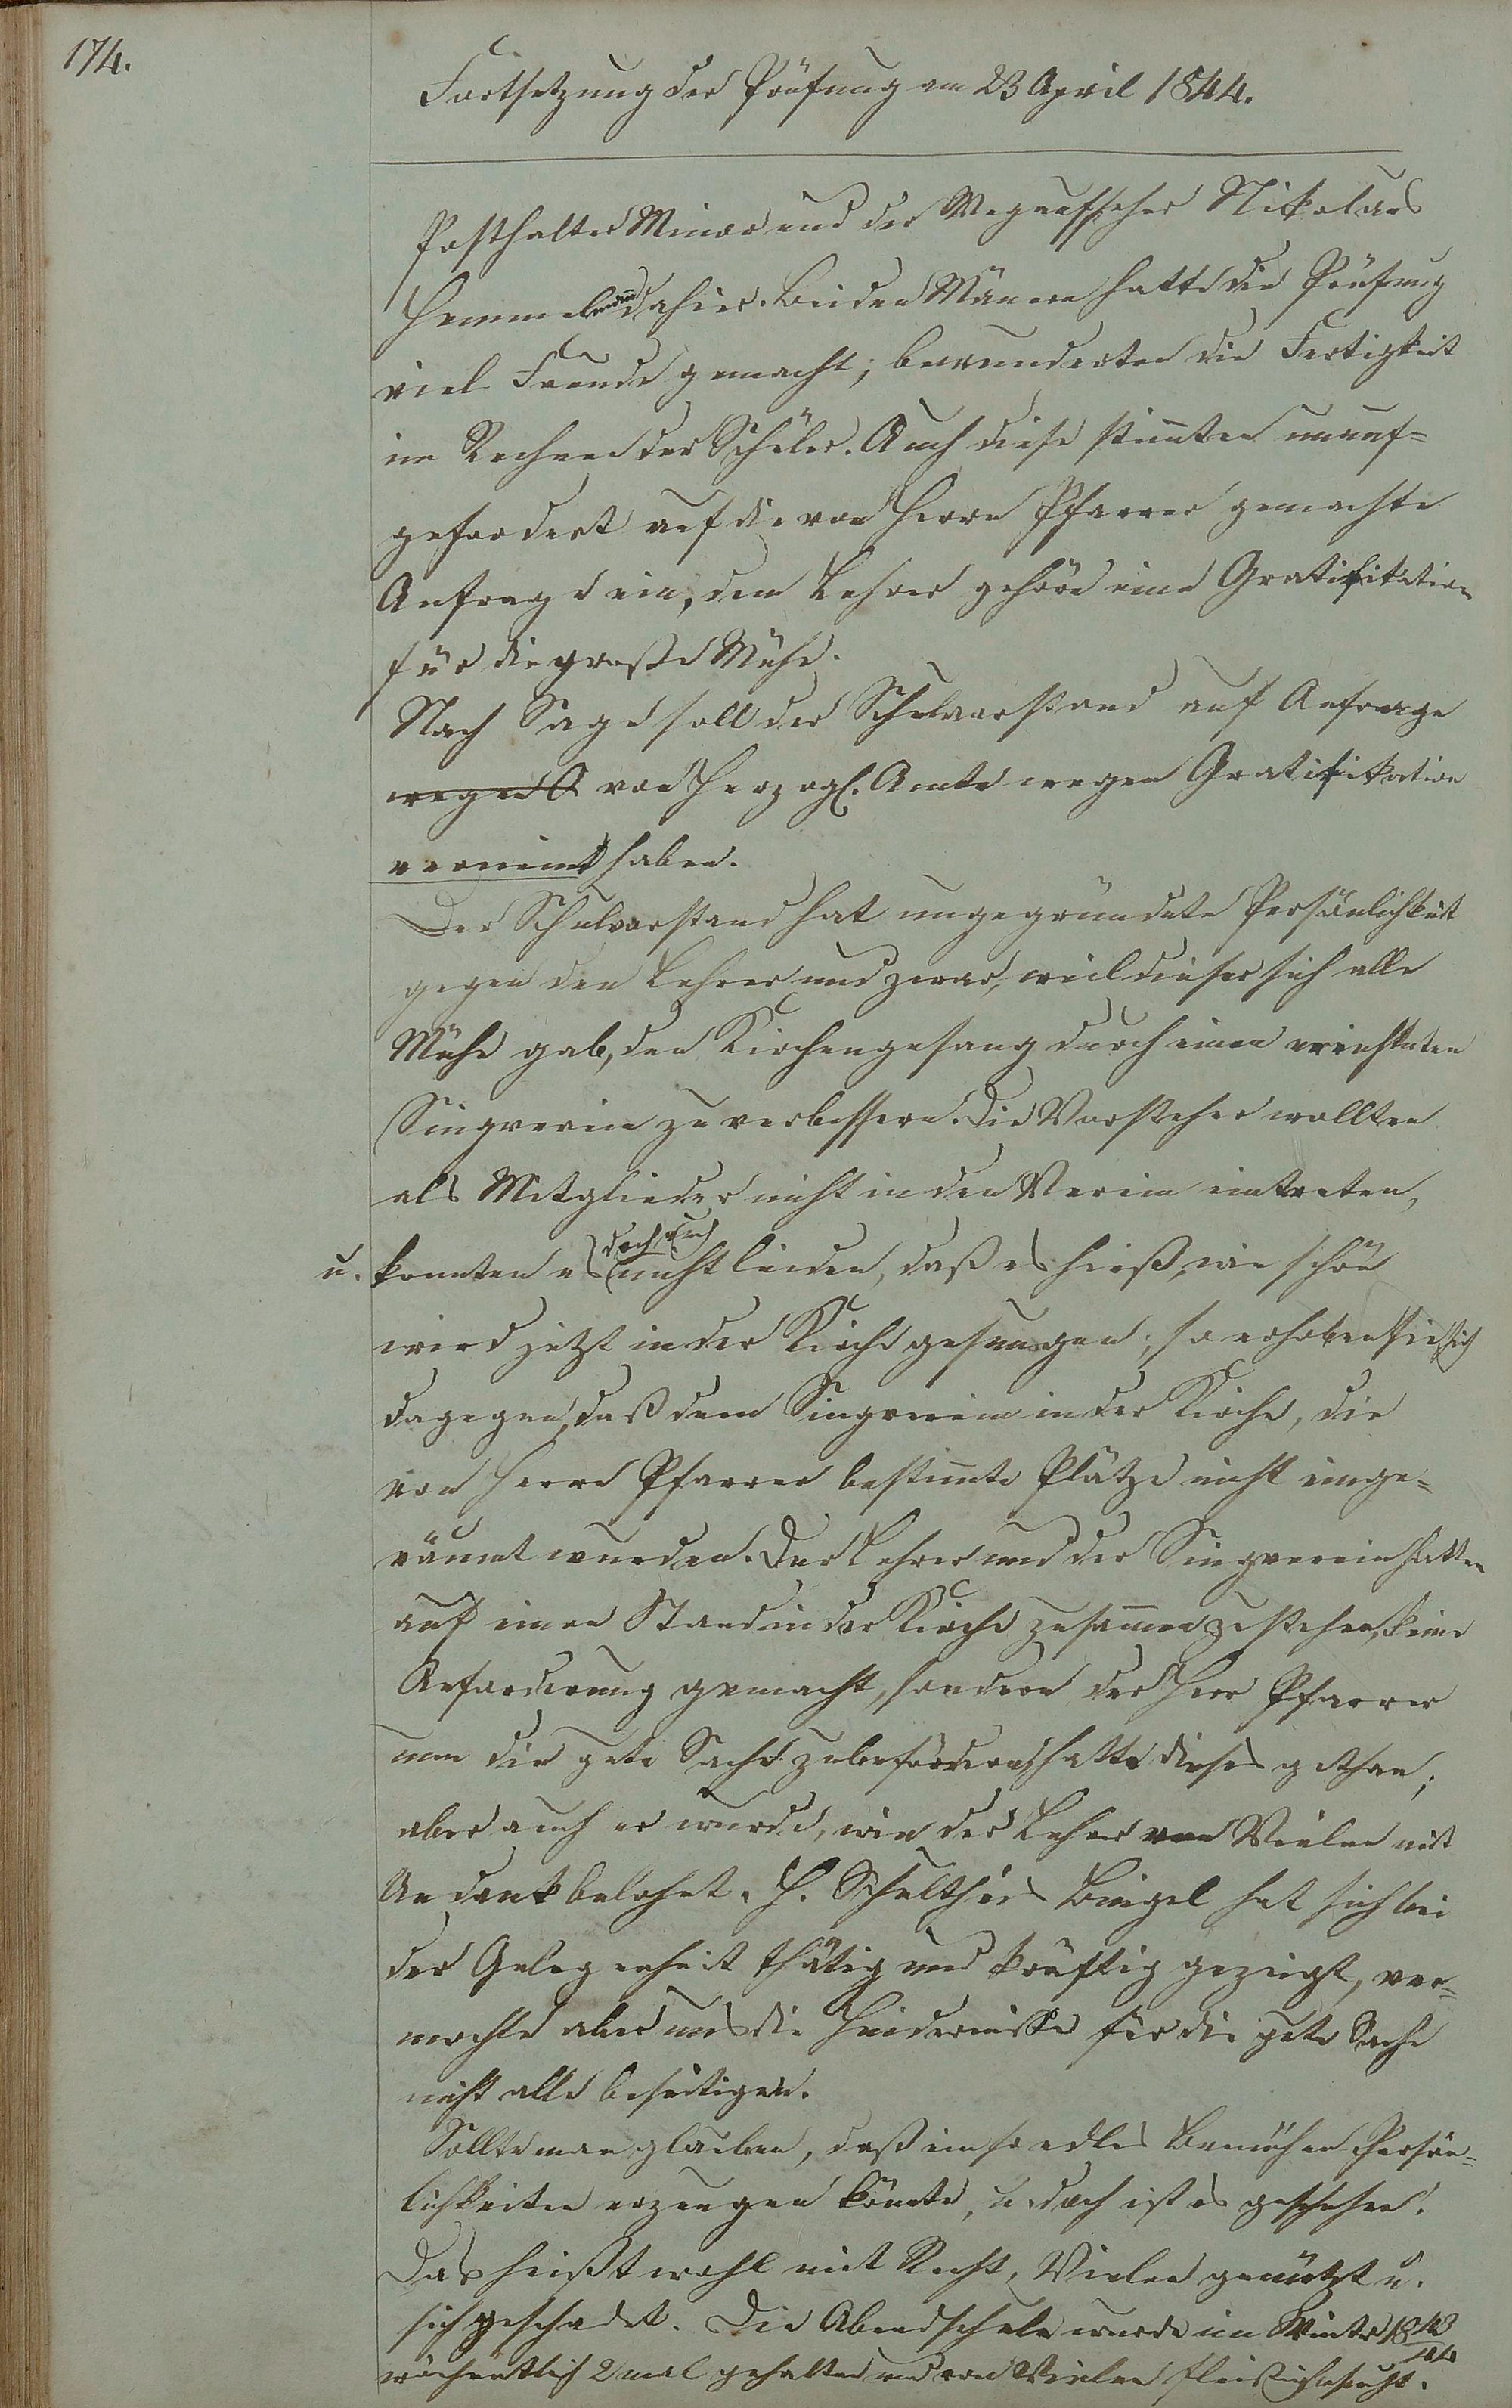 174.
Fortsetzung der Prüfung am 23 April 1844.
Posthalter Minor und der Wegaufseher Nikolaus
dahier. Beiden Männern hatte die Prüfung
viel Freude gemacht; bewunderten die Fertigkeit
im Rechnen der Schüler. Auch diese stim̄ten unauf=
gefordert auf die von Herrn Pfarrer gemachte
Anfrage ein, dem Lehrer gehöre eine Gratifikation
für die große Mühe.
Nach Sage soll der Schulvorstand auf Anfrage
wegen von Herzogl. Amte wegen Gratifikation
verneint haben.
Der Schulvorstand hat ungegründete Persönlichkeit
gegen den Lehrer und zwar, weil dieser sich alle
Mühe gab, den Kirchengesang durch einen errichteten
Singverein zu verbessern. Die Vorsteher wollten
als Mitglieder nicht in den Verein eintreten,
u. konnten es doch auch nicht leiden, daß es hieß, wie schön
wird jetzt in der Kirche gesungen; so erhoben sie sich
dagegen, daß dem Singverein in der Kirche, die
von Herrn Pfarrer bestim̄te Plätze nicht einge=
räumt wurden. Der Lehrer und der Singverein hatten
auf einen Stand in der Kirche zusam̄en zu stehen, keine
Anforderung gemacht, sondern der Herr Pfarrer
um die gute Sache zu befördern hatte dieses gethan;
aber auch er wurde, wie der Lehrer von Vielen mit
Undank belohnt. H. Schultheis Bingel hat sich bei
der Gelegenheit thätig und kräftig gezeigt, ver=
mochte aber uns die Hindernisse für die gute Sache
nicht alle beseitigen.
Sollte man glauben, daß ein so edles Bemühen Persön=
lichkeiten erzeugen könnte, u. doch ist es geschehen.
Das heißt wohl mit Recht, Vielen genützt u.
sich geschadet. Die Abendschule wurde im Winter 1843/44
wöchentlich 2mal gehalten und von Vielen fleißig besucht.